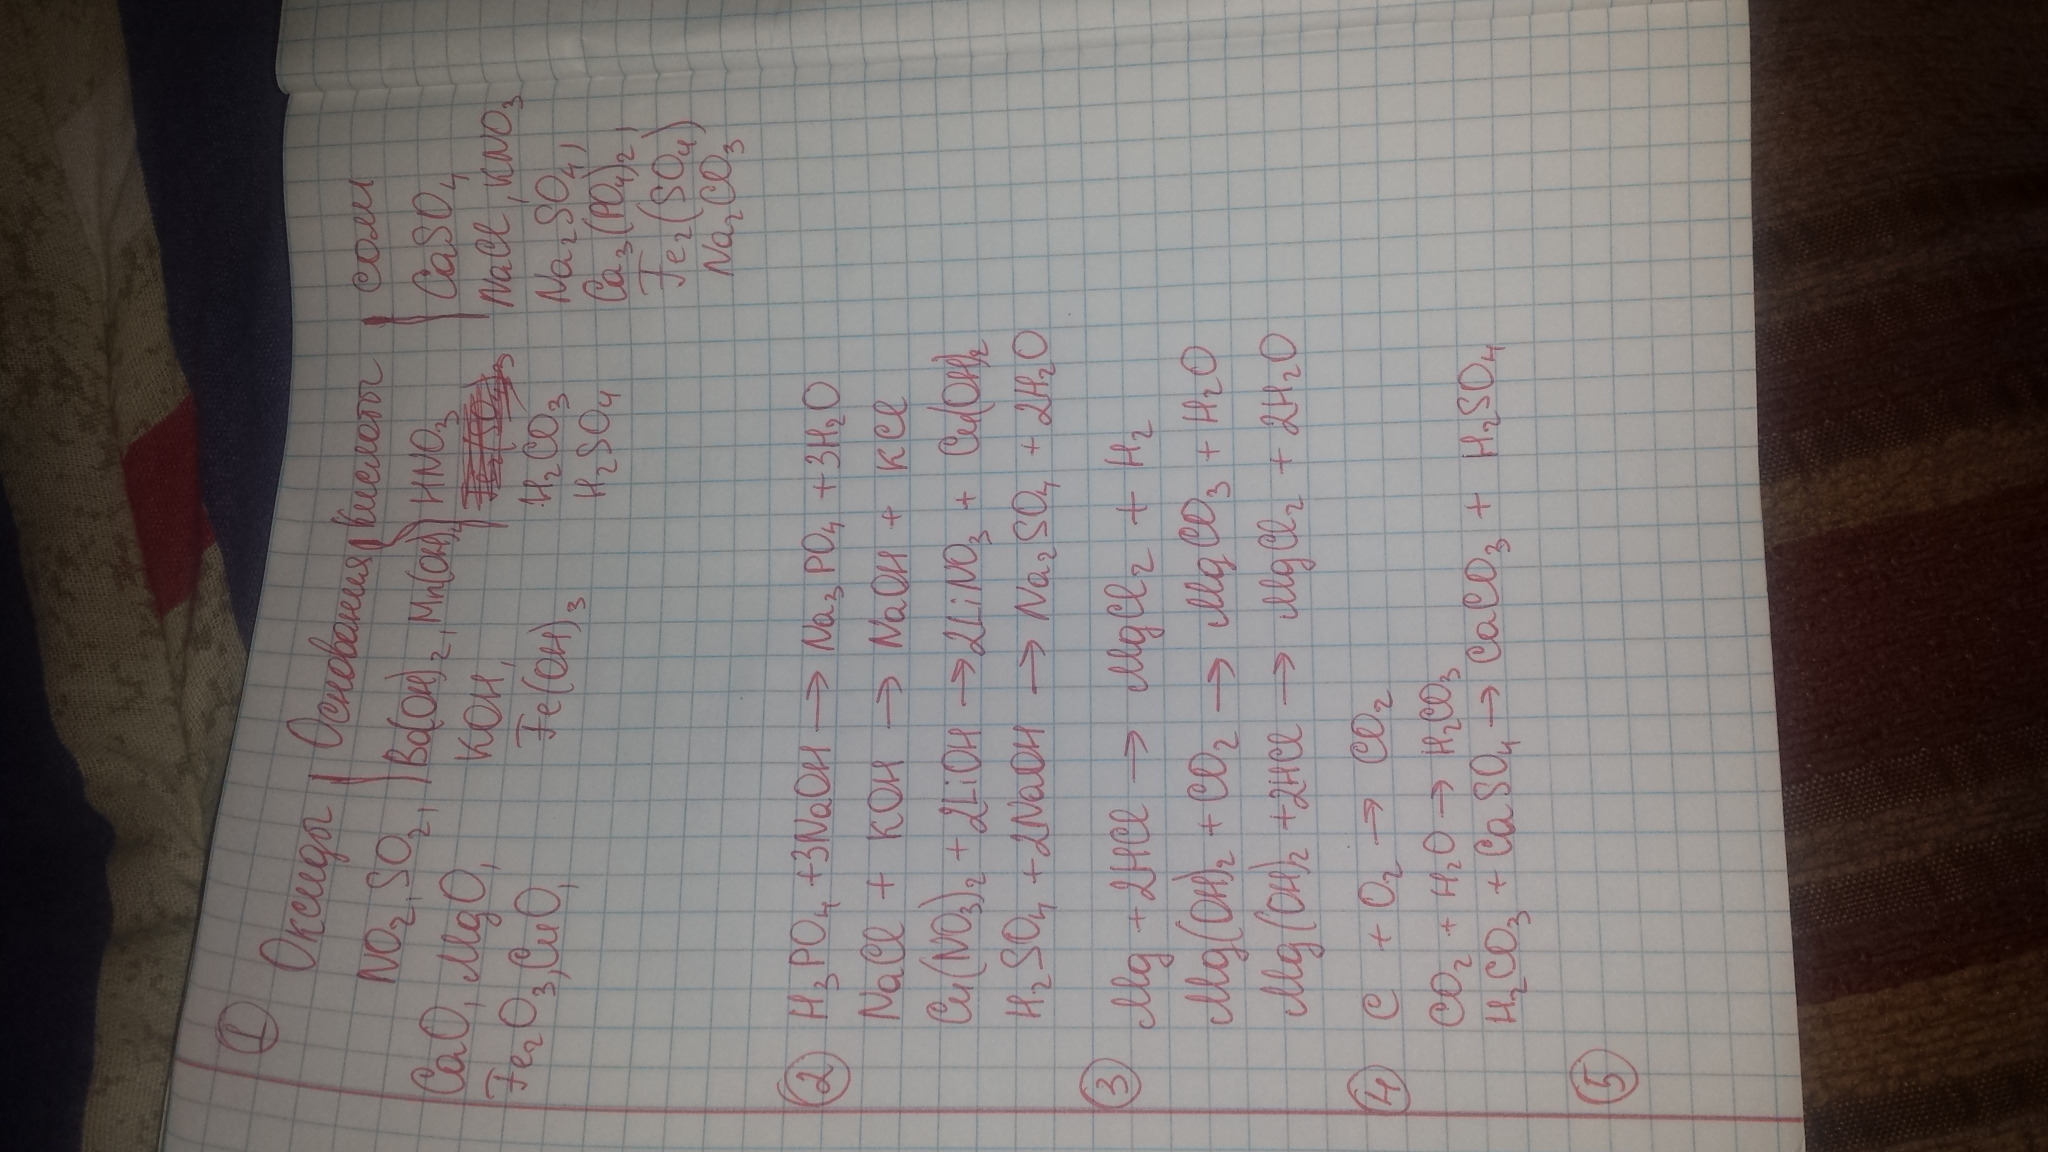 ① Оксиды | Основания | Кислоты | соли
NO₂, SO₂, | Ba(OH)₂, Mn(OH)₄ | HNO₃ | CaSO₄
CaO, MgO, KOH, NaCl, KNO₃
Fe₂O₃, CuO, Fe(OH)₃ H₂CO₃ Na₂SO₄,
H₂SO₄ Ca₃(PO₄)₂,
Fe₂(SO₄)
Na₂CO₃
② H₃PO₄ + 3NaOH → Na₃PO₄ + 3H₂O
NaCl + KOH → NaOH + KCl
Cu(NO₃)₂ + 2LiOH → 2LiNO₃ + Cu(OH)₂
H₂SO₄ + 2NaOH → Na₂SO₄ + 2H₂O
③ Mg + 2HCl → MgCl₂ + H₂
Mg(OH)₂ + CO₂ → MgCO₃ + H₂O
Mg(OH)₂ + 2HCl → MgCl₂ + 2H₂O
④ C + O₂ → CO₂
CO₂ + H₂O → H₂CO₃
H₂CO₃ + CaSO₄ → CaCO₃ + H₂SO₄
⑤